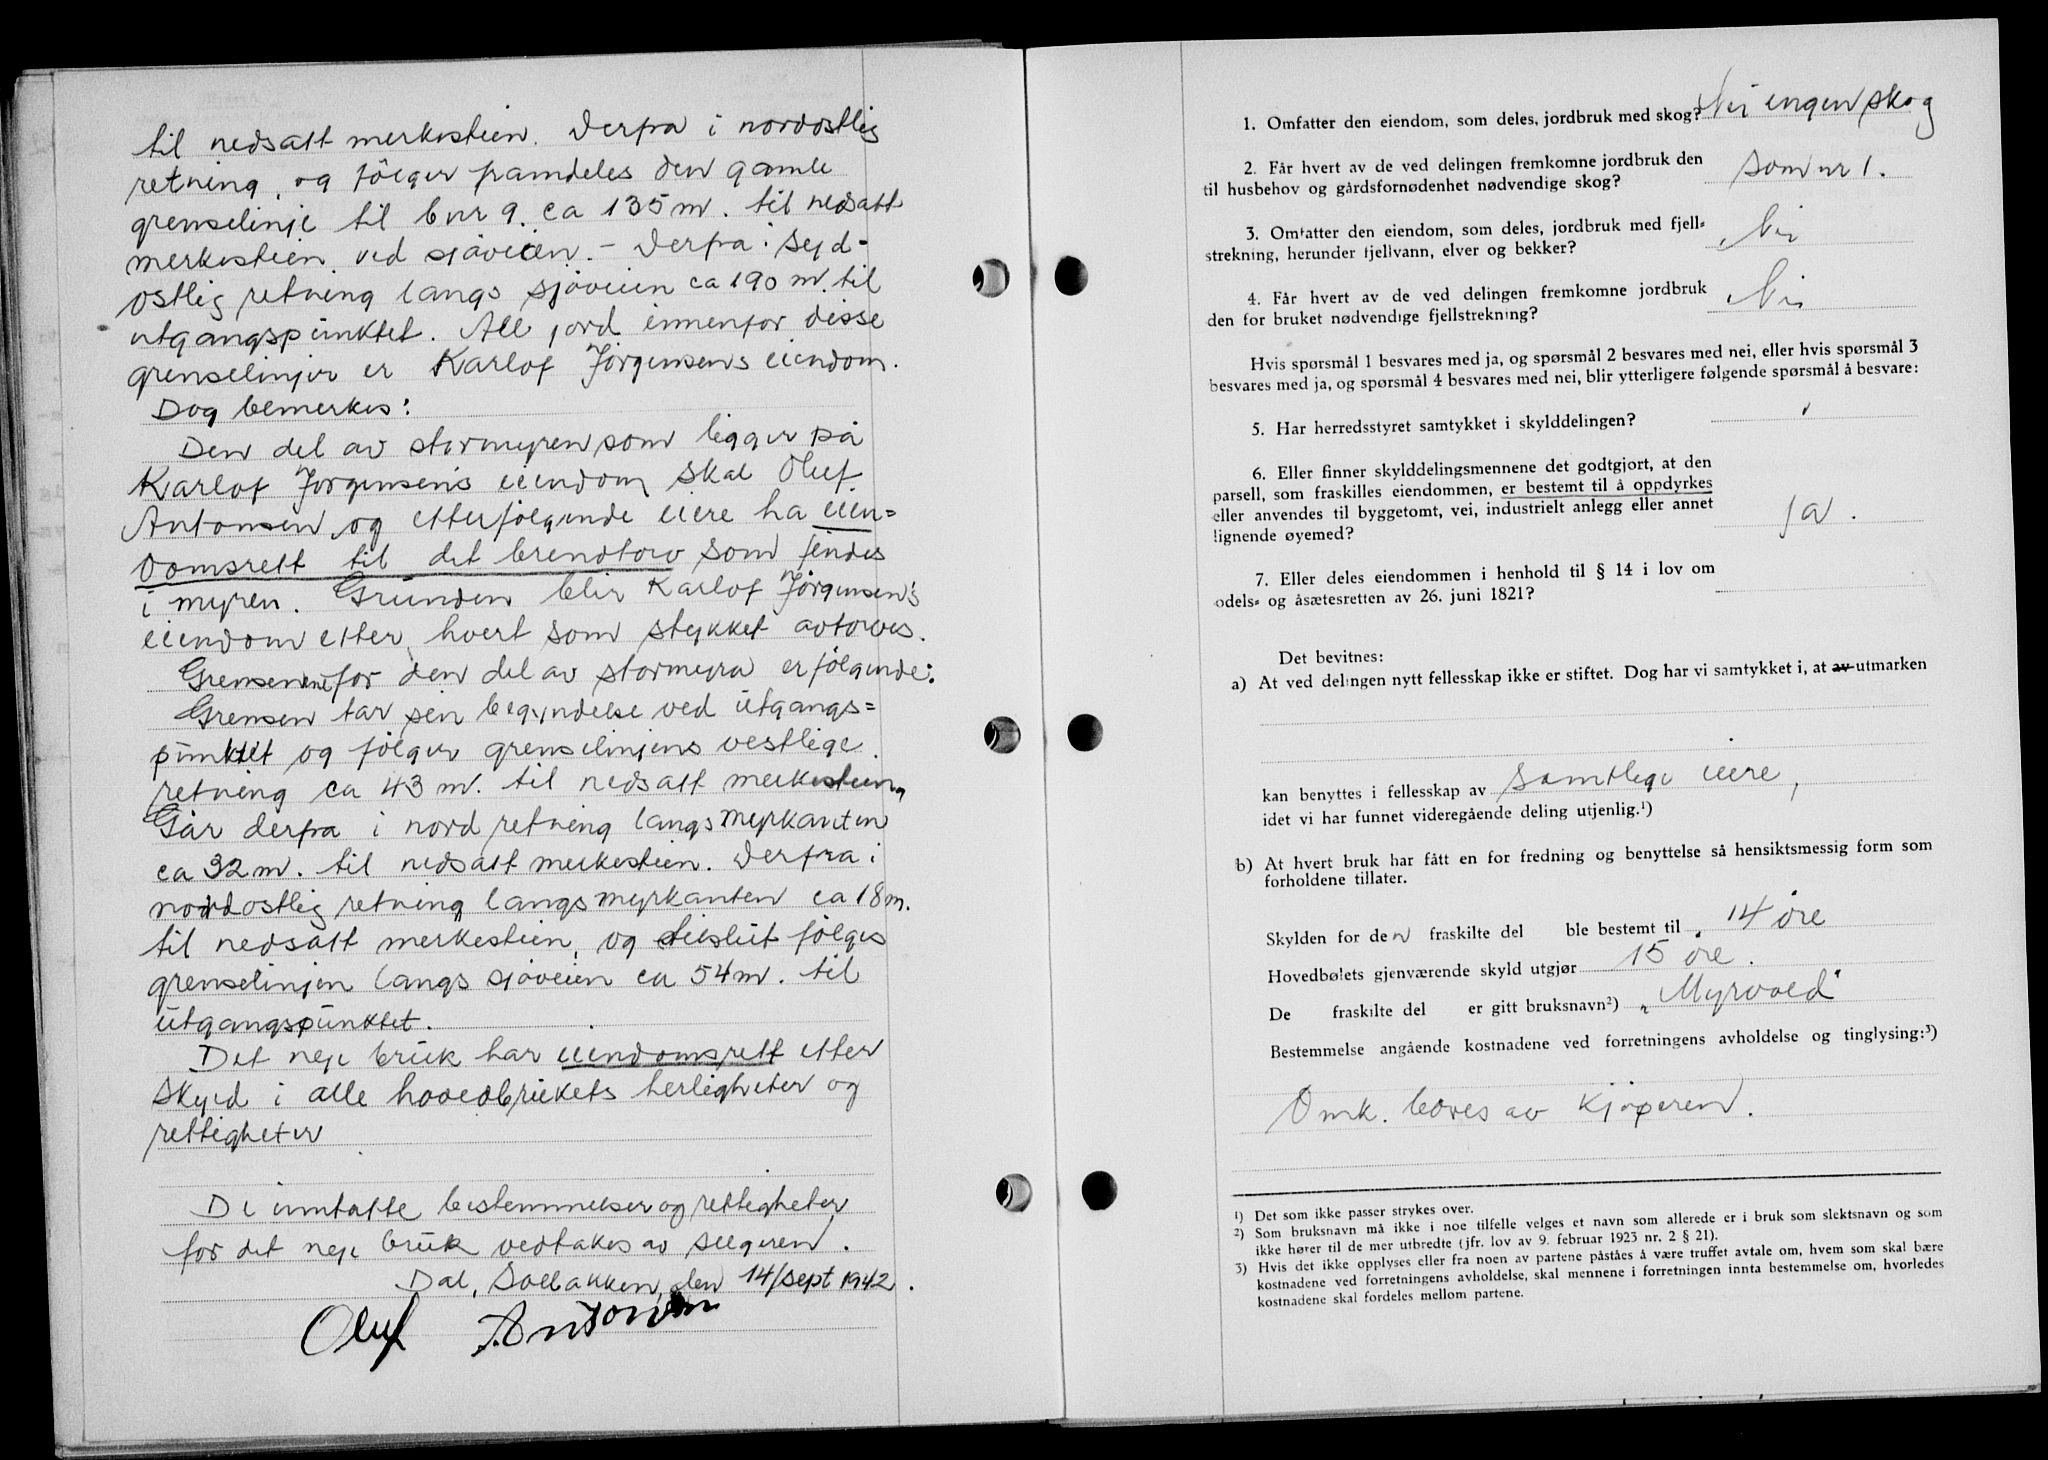 til nedsatt merkestein. Derfra i nordöstlig
retning, og fölger framdeles den gamle
grenselinje til bnr 9. ca 135 m. til nedsatt
merkestein ved sjöveien. - Derfra i syd-
östlig retning langs sjöveien ca 190 m. til
utgangspunktet. All jord innenfor disse
grenselinjer er Karlof Jörgensens eiendom.
Dog bemerkes:
Den del av stormyren som ligger på
Karlof Jörgensens eiendom skal Oluf
Antonsen og etterfölgende eiere ha eien=
domsrett til det brendtorv som findes
i myren. Grunden blir Karlof Jörgensen's
eiendom etter hvert som stykket avtorves.
Grensene for den del av stormyra er fölgende:
Grensen tar sin begyndelse ved utgangs=
punktet og fölger grenselinjens vestlige
retning ca 43 m. til nedsatt merkestein,
Går derfra i nord retning langs myrkanten
ca 32 m. til nedsatt merkestein. Derfra i
nordostlig retning langs myrkanten ca 18 m.
til nedsatt merkestein, og tilslut fölges
grenselinjen langs sjöveien ca 54 m. til
utgangspunktet.
Det nye bruk har eiendomsrett etter
Skyld i alle hovedbrukets herligheter og
rettigheter
De inntatte bestemmelser og rettigheter
for det nye bruk vedtakes av selgeren.
Dal, Solbakken, den 14/sept 1942.
Oluf Antonsen
1. Omfatter den eiendom, som deles, jordbruk med skog? Nei ingen skog
2. Får hvert av de ved delingen fremkomne jordbruk den
til husbehov og gårdsfornødenhet nødvendige skog? som nr 1.
3. Omfatter den eiendom, som deles, jordbruk med fjell=
strekning, herunder fjellvann, elver og bekker? Nei
4. Får hvert av de ved delingen fremkomne jordbruk
den for bruket nødvendige fjellstrekning? Nei
Hvis spørsmål 1 besvares med ja, og spørsmål 2 besvares med nei, eller hvis spørsmål 3
besvares med ja, og spørsmål 4 besvares med nei, blir ytterligere følgende spørsmål å besvare:
5. Har herredsstyret samtykket i skylddelingen?
6. Eller finner skylddelingsmennene det godtgjort, at den
parsell, som fraskilles eiendommen, er bestemt til å oppdyrkes
eller anvendes til byggetomt, vei, industrielt anlegg eller annet
lignende øyemed? ja.
7. Eller deles eiendommen i henhold til § 14 i lov om
odels= og åsætesretten av 26. juni 1821?
Det bevitnes:
a) At ved delingen nytt fellesskap ikke er stiftet. Dog har vi samtykket i, at av utmarken
kan benyttes i fellesskap av samtlige eiere,
idet vi har funnet videregående deling utjenlig.¹)
b) At hvert bruk har fått en for fredning og benyttelse så hensiktsmessig form som
forholdene tillater.
Skylden for den fraskilte del ble bestemt til 14 öre
Hovedbølets gjenværende skyld utgjør 15 öre.
De fraskilte del er gitt bruksnavn²) „Myrvold"
Bestemmelse angående kostnadene ved forretningens avholdelse og tinglysing:³)
Omk. bæres av kjöperen.
1) Det som ikke passer strykes over.
2) Som bruksnavn må ikke i noe tilfelle velges et navn som allerede er i bruk som slektsnavn og som
ikke hører til de mer utbredte (jfr. lov av 9. februar 1923 nr. 2 § 21).
3) Hvis det ikke opplyses eller fra noen av partene påståes å være truffet avtale om, hvem som skal bære
kostnadene ved forretningens avholdelse, skal mennene i forretningen innta bestemmelse om, hvorledes
kostnadene skal fordeles mellom partene.